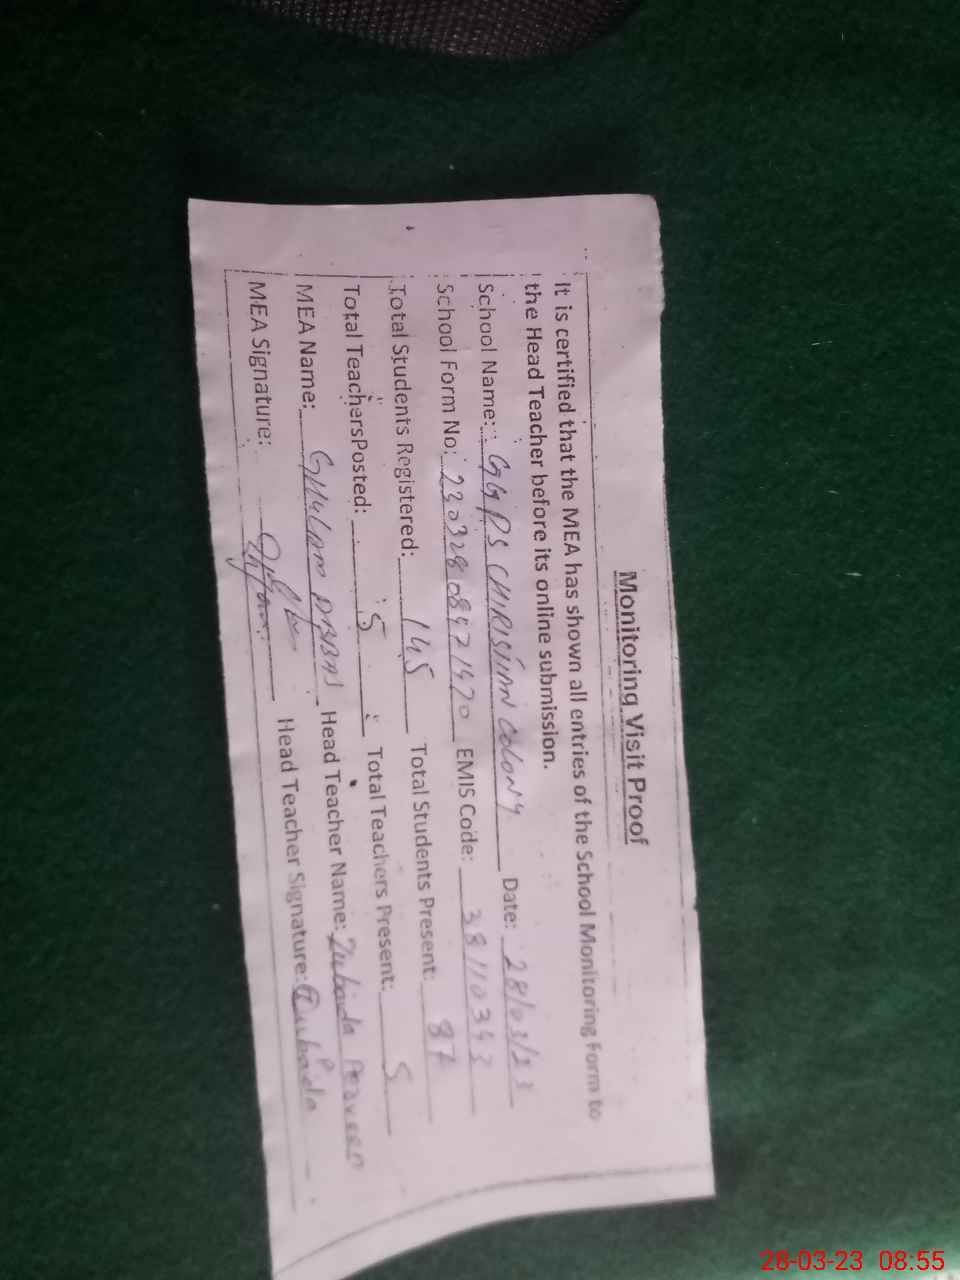 Monitoring Visit Proof
It is certified that the MEA has shown all entries of the School Monitoring Form to
the Head Teacher before its online submission.
School Name: GGPS CHIRISTIAN COLONY Date: 28/03/23
School Form No: 230328089721470 EMIS Code: 38110343
Total Students Registered: 145 Total Students Present: 87
Total TeachersPosted: 5 Total Teachers Present: 5
MEA Name: GHULAM ABBAS Head Teacher Name: Zubaida Parveen
MEA Signature: Head Teacher Signature: Zubaida
28-03-23 08:55